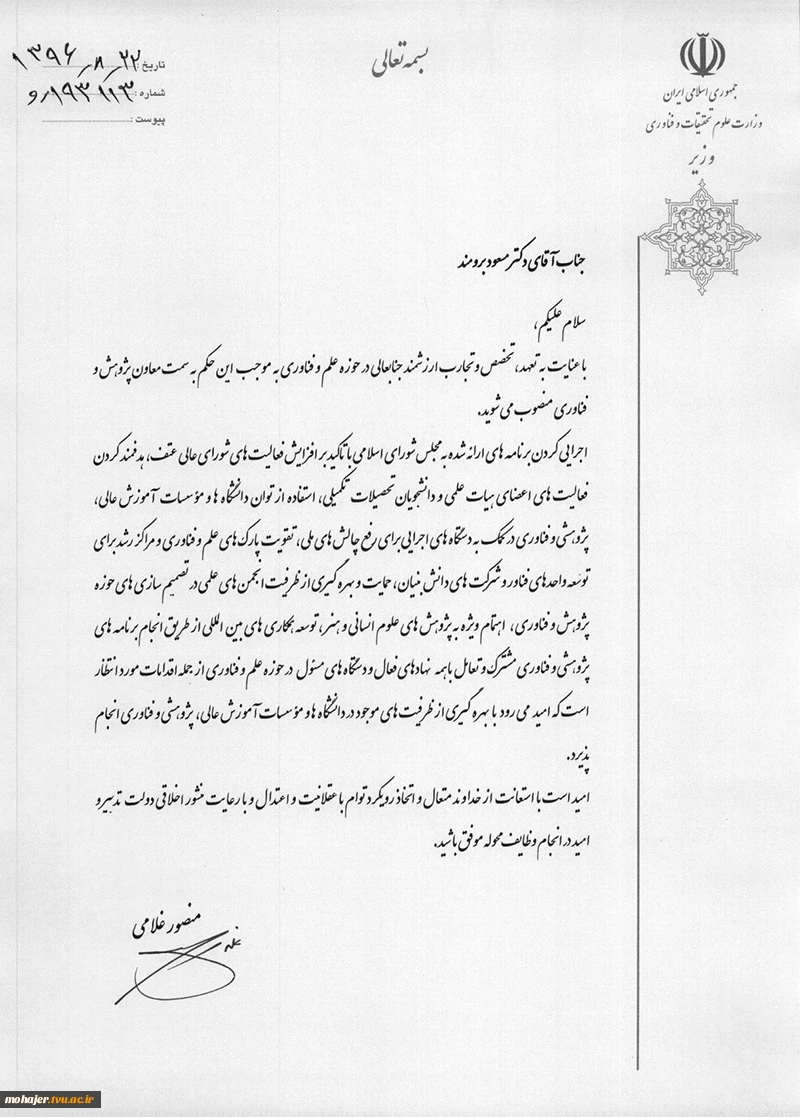 بسمه تعالی
جمهوری اسلامی ایران
وزارت علوم تحقیقات و فناوری
وزیر
تاریخ: ۱۳۹۶/۸/۲۲
شماره:
پیوست:
جناب آقای دکتر مسعود برومند
سلام علیکم،
با عنایت به تعهد، تخصص و تجارب ارزشمند جنابعالی در حوزه علم و فناوری به موجب این حکم به سمت معاون پژوهش و
فناوری منصوب می شوید.
اجرایی کردن برنامه های ارائه شده به مجلس شورای اسلامی با تاکید بر افزایش فعالیت های شورای عالی عتف، هدفمند کردن
فعالیت های اعضای هیات علمی و دانشجویان تحصیلات تکمیلی، استفاده از توان دانشگاه ها و مؤسسات آموزش عالی،
پژوهشی و فناوری در کمک به دستگاه های اجرایی برای رفع چالش های ملی، تقویت پارک های علم و فناوری و مراکز رشد برای
توسعه واحدهای فناور و شرکت های دانش بنیان، حمایت و بهره گیری از ظرفیت انجمن های علمی در تصمیم سازی های حوزه
پژوهش و فناوری، اهتمام ویژه به پژوهش های علوم انسانی و هنر، توسعه همکاری های بین المللی از طریق انجام برنامه های
پژوهشی و فناوری مشترک و تعامل با همه نهادهای فعال و دستگاه های مسئول در حوزه علم و فناوری از جمله اقدامات مورد انتظار
است که امید می رود با بهره گیری از ظرفیت های موجود در دانشگاه ها و مؤسسات آموزش عالی، پژوهشی و فناوری انجام
پذیرد.
امید است با استعانت از خداوند متعال و اتخاذ رویکرد توام با عقلانیت و اعتدال و با رعایت منشور اخلاقی دولت تدبیر و
امید در انجام وظایف محوله موفق باشید.
منصور غلامی
mohajer.tvu.ac.ir